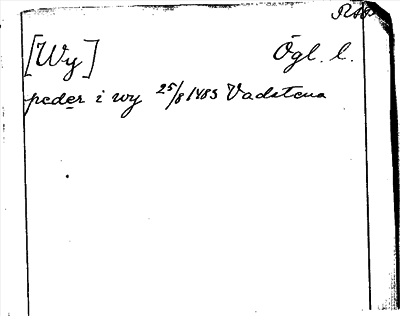 RAP
[Wy] Ögl. l.
peder i wy 25/8 1483 Vadstena